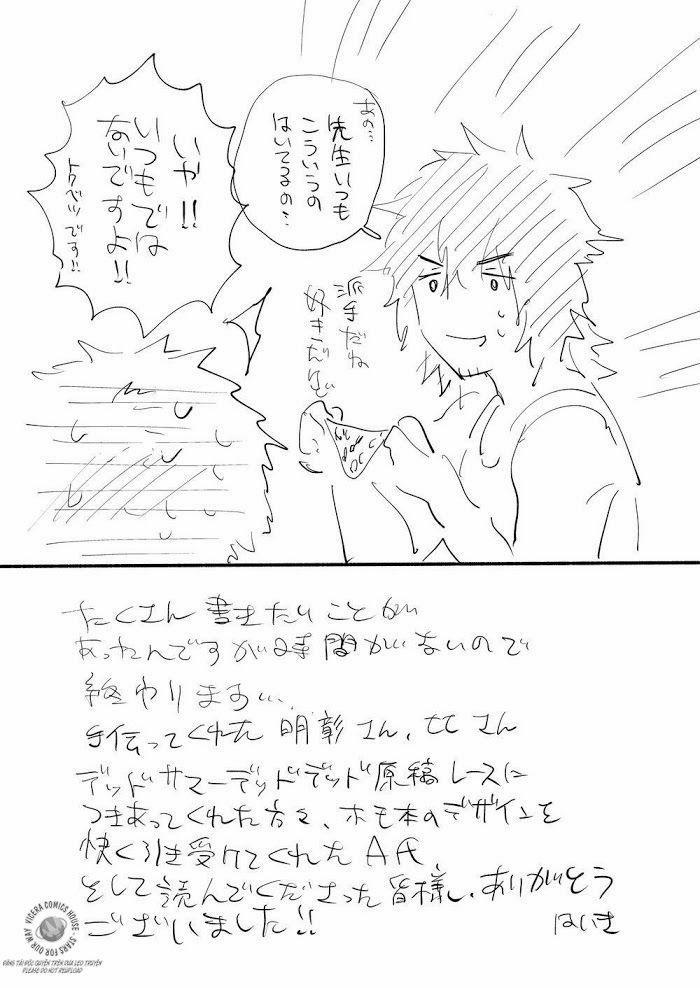 あの…
先生いつも
こういうの
はいてるの…
いや!!
いつもでは
ないですよ!!
トクベツです!!
派手だね
好きだぜ
たくさん 書きたいことが
あったんですが時間がないので
終わります…
手伝ってくれた 明彰さん、ヒヒさん
デッドサマーデッドデッド原稿レースに
つきあってくれた方々、ホモ本のデザインを
快く引き受けてくれたA氏
そして読んでくださった皆様、ありがとう
ございました!!
はいき
VICERA COMICS HOUSE - STARS FOR OUR WAY
ĐĂNG TẢI ĐỘC QUYỀN TRÊN DUA LEO TRUYỆN
PLEASE DO NOT REUPLOAD